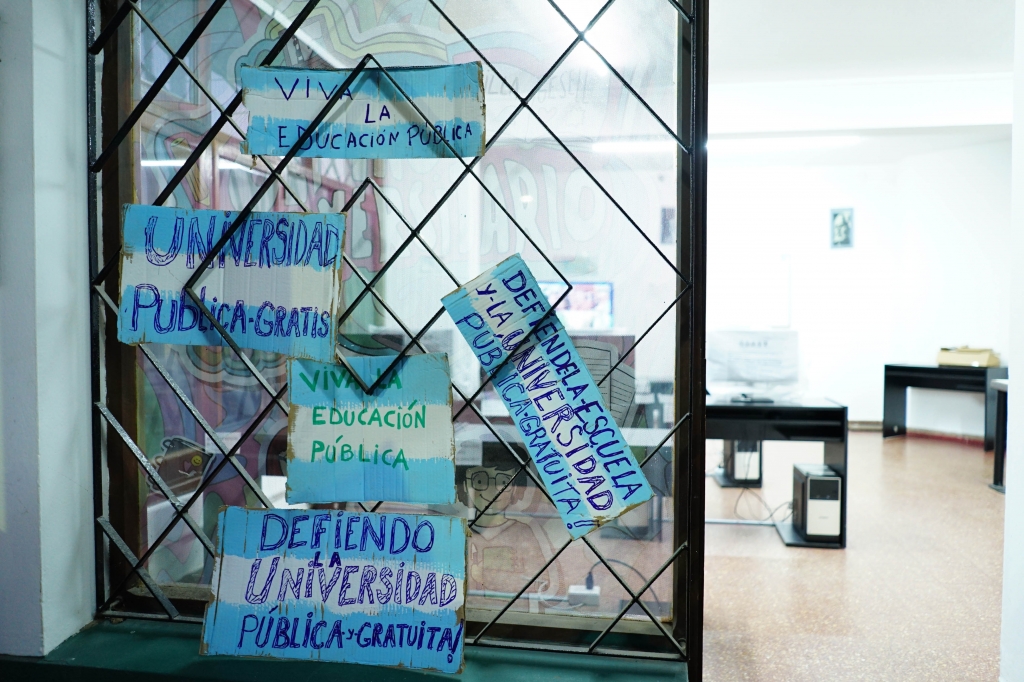 VIVA
LA
EDUCACIÓN PÚBLICA
UNIVERSIDAD
PÚBLICA-GRATIS
VIVA LA
EDUCACIÓN
PÚBLICA
DEFIENDE-LA-ESCUELA
Y-LA-UNIVERSIDAD
PÚBLICA-GRATUITA!
DEFIENDO
LA
UNIVERSIDAD
PÚBLICA-Y-GRATUITA!